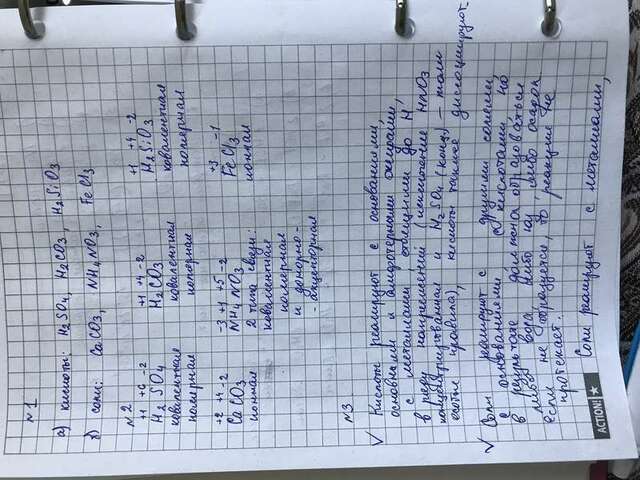 №1
а) кислоты: H2SO4, H2CO3, H2SiO3
б) соли: CaCO3, NH4NO3, FeCl3
№2
+1 +6 -2 +1 +4 -2 +1 +4 -2
H2SO4 H2CO3 H2SiO3
ковалентная ковалентная ковалентная
полярная полярная полярная
+2 +4 -2 -3 +1 +5 -2 +3 -1
CaCO3 NH4NO3 FeCl3
ионная 2 типа связи: ионная
ковалентная
полярная
и донорно-
-акцепторная
№3
✓ Кислоты реагируют с основаниями,
основными и амфотерными оксидами,
с металлами, стоящими до H
в ряду напряжений (исключение HNO3
концентрированная и H2SO4 (конц.) – там
особые правила), кислоты также диссоциируют.
✓ Соли реагируют с другими солями,
с основаниями с кислотами но
в результате должна образоваться
либо вода, либо газ, либо осадок
Если не образуется, то реакция не
протекает.
Соли реагируют с металлами,
ACTION! ★